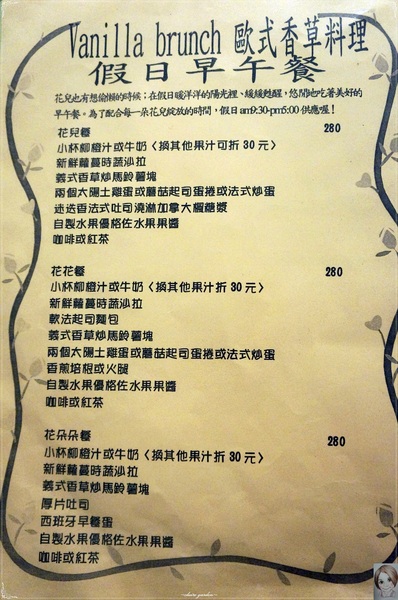 Vanilla brunch 歐式香草料理
假日早午餐
花兒也有想偷懶的時候；在假日暖洋洋的陽光裡、緩緩甦醒，悠閒地吃著美好的
早午餐。為了配合每一朵花兒綻放的時間，假日 am9:30-pm5:00 供應喔！
花兒餐 280
小杯柳橙汁或牛奶〈換其他果汁可折 30 元〉
新鮮蘿蔓時蔬沙拉
義式香草炒馬鈴薯塊
兩個太陽土雞蛋或蘑菇起司蛋捲或法式炒蛋
迷迭香法式吐司澆淋加拿大楓糖漿
自製水果優格佐水果果醬
咖啡或紅茶
花花餐 280
小杯柳橙汁或牛奶〈換其他果汁折 30 元〉
新鮮蘿蔓時蔬沙拉
軟法起司麵包
義式香草炒馬鈴薯塊
兩個太陽土雞蛋或蘑菇起司蛋捲或法式炒蛋
香煎培根或火腿
自製水果優格佐水果果醬
咖啡或紅茶
花朵朵餐 280
小杯柳橙汁或牛奶〈換其他果汁折 30 元〉
新鮮蘿蔓時蔬沙拉
義式香草炒馬鈴薯塊
厚片吐司
西班牙早餐蛋
自製水果優格佐水果果醬
咖啡或紅茶